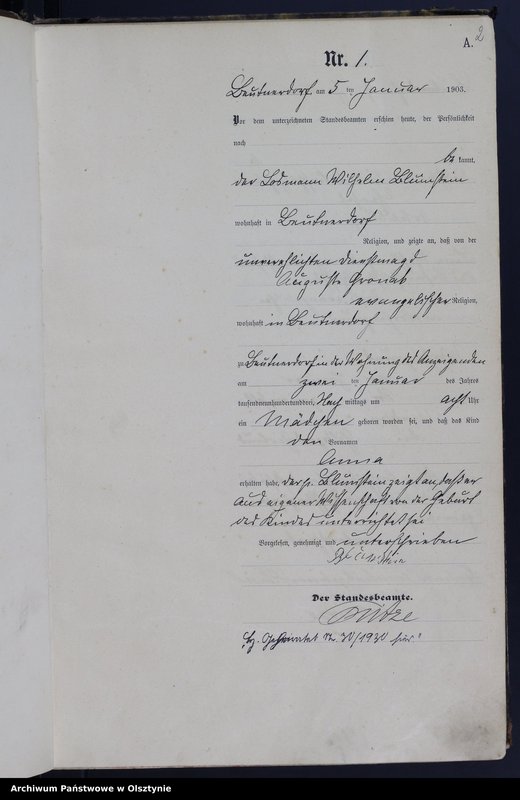 2
A.
Nr. 1.
Beutnerdorf am 5 ten Januar 1903.
Vor dem unterzeichneten Standesbeamten erschien heute, der Persönlichkeit
nach
be kannt,
der Losmann Wilhelm Blumstein
wohnhaft in Beutnerdorf
Religion, und zeigte an, daß von der
unverehelichten Dienstmagd
Auguste
evangelischer Religion,
wohnhaft in Beutnerdorf
zu Beutnerdorf in der Wohnung des Anzeigenden
am zwei ten Januar des Jahres
tausendneunhundertunddrei, Nach mittags um acht Uhr
ein Mädchen geboren worden sei, und daß das Kind
den Vornamen
Anna
erhalten habe. Der p. Blumstein zeigt an, daß er
aus eigener Wissenschaft von der Geburt
des Kindes unterrichtet sei
Vorgelesen, genehmigt und unterschrieben
Blumstein
Der Standesbeamte.
Geheiratet Nr. 30/1930 hier
Archiwum Państwowe w Olsztynie